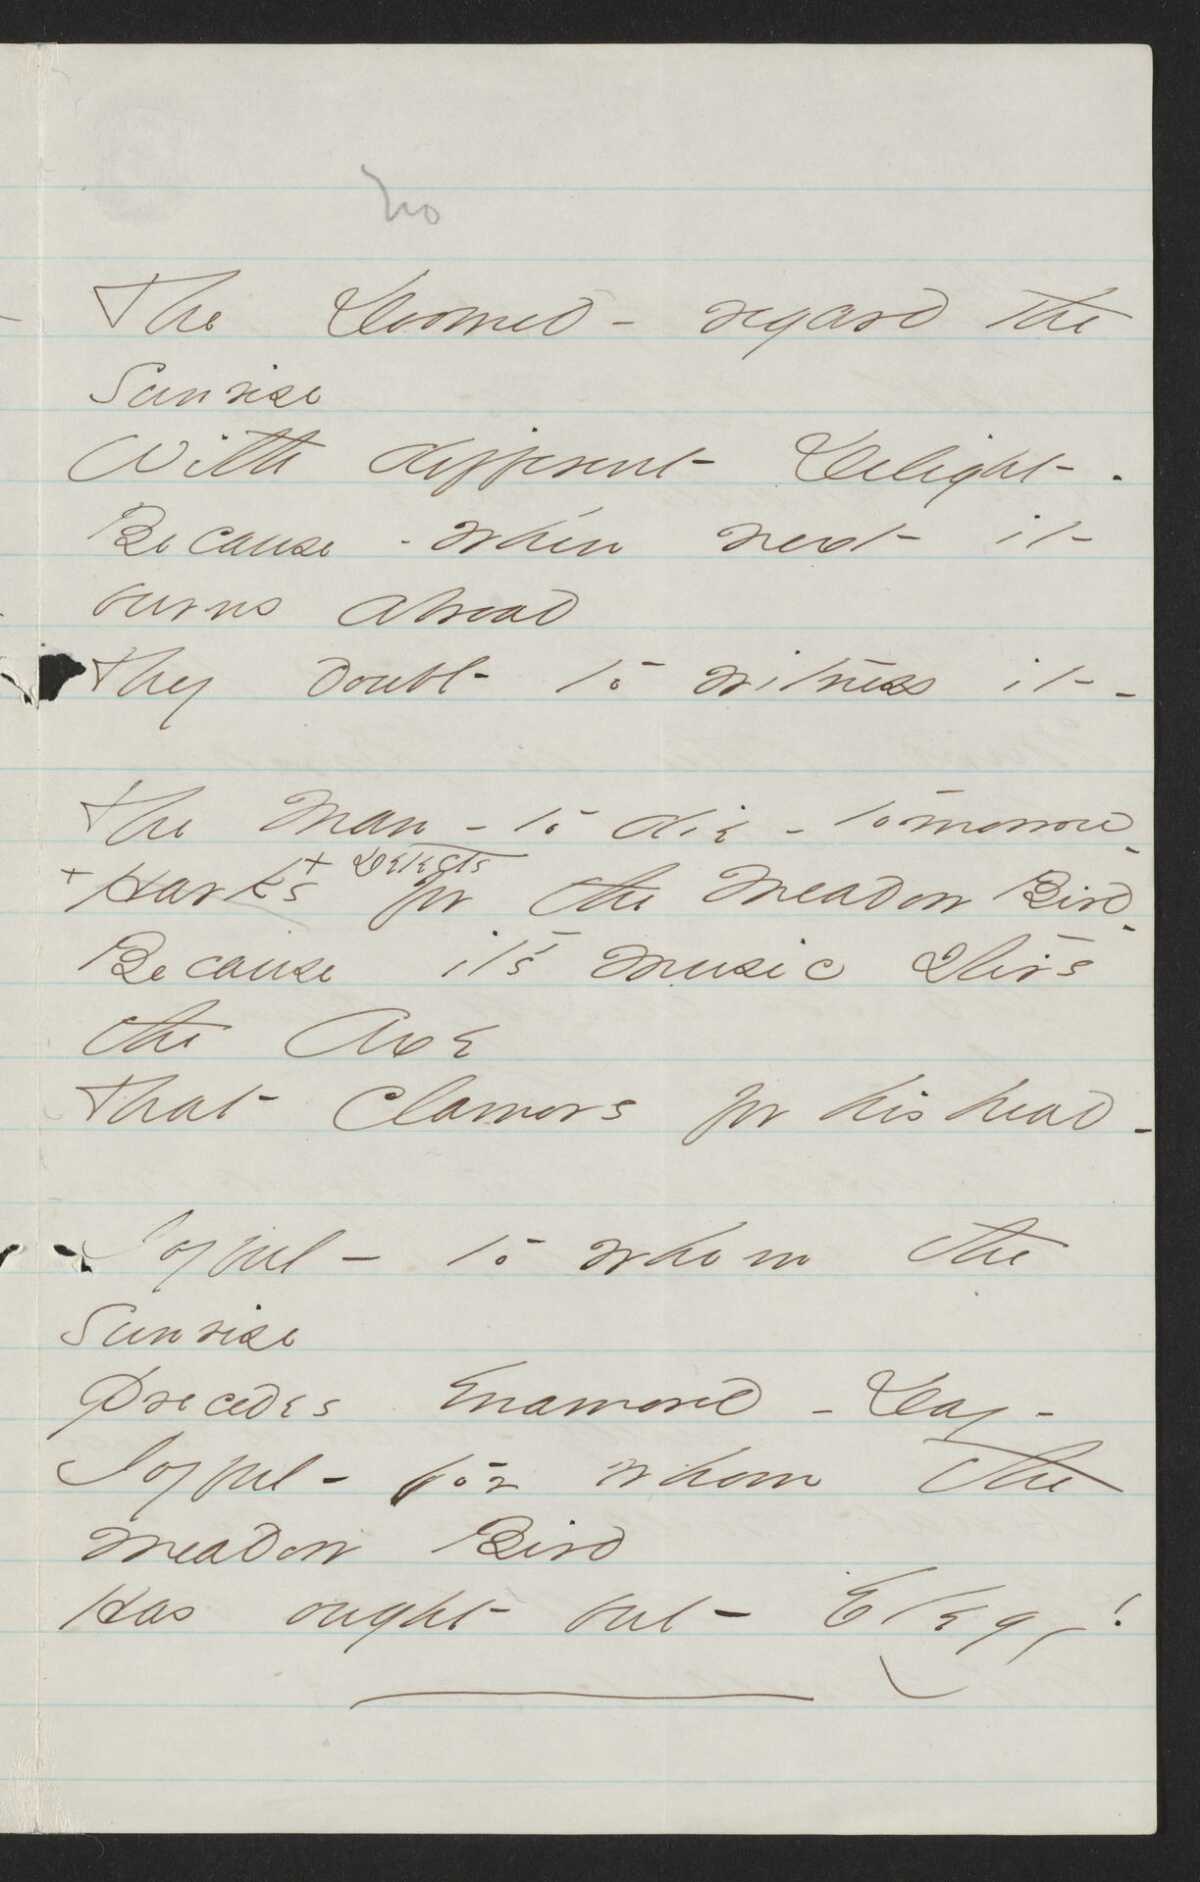 no
The Doomed – regard the
Sunrise
With different Delight –
Because – when next it
burns abroad
They doubt to witness it –
The Man – to die – tomorrow –
+ Detects
+ Harks for the Meadow Bird –
Because it's music stirs
the Axe
That clamors for his head –
Joyful – to whom the
Sunrise
Precedes Enamored – Day –
Joyful – for whom the
Meadow Bird
Has ought but – Elegy!